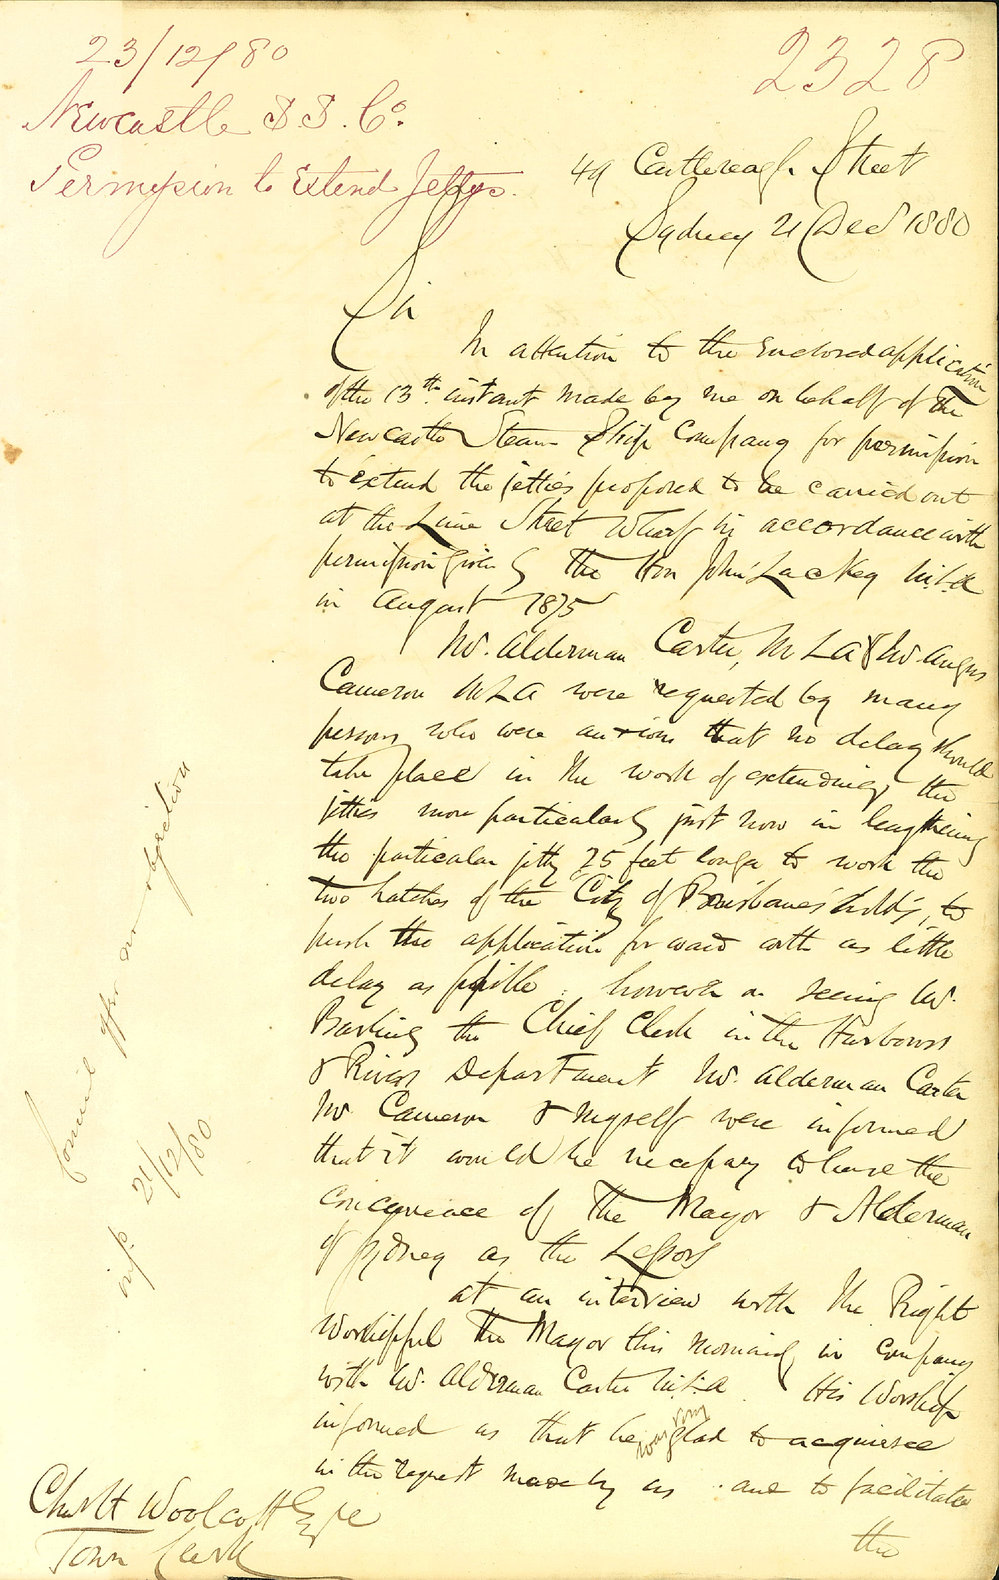 23/12/80
2328
Newcastle S.S. Co.
Permission to Extend Jettys.
49 Castlereagh Street
Sydney 21 Dec 1880
Sir
In attention to the Enclosed application
of the 13th instant made by me on behalf of the
Newcastle Steam Ship Company for permission
to extend the jetties proposed to be carried out
at the Lime Street Wharf in accordance with
permission given by the Hon John Lackey M.L.A
in August 1875
Mr. Alderman Carter, M L A & Mr Angus
Cameron M L A were requested by many
persons who were anxious that no delay should
take place in the work of extending the
jetties more particularly just now in lengthening
the particular jetty 25 feet longer to work the
two hatches of the City of Brisbane's holds, to
push the application forward with as little
delay as possible. however on seeing Mr.
Barling the Chief Clerk in the Harbours
& Rivers Department Mr. Alderman Carter
Mr Cameron & myself were informed
that it would be necessary to have the
concurrence of the Mayor & Alderman
of Sydney as the Lessors
at an interview with the Right
Worshipful the Mayor this morning in company
with Mr. Alderman Carter M.L.A. His Worship
informed us that he was very glad to acquiesce
in the request made by us and to facilitate
the
Council offer no objection
21/12/80
Chas H Woolcott Esqre
Town Clerk